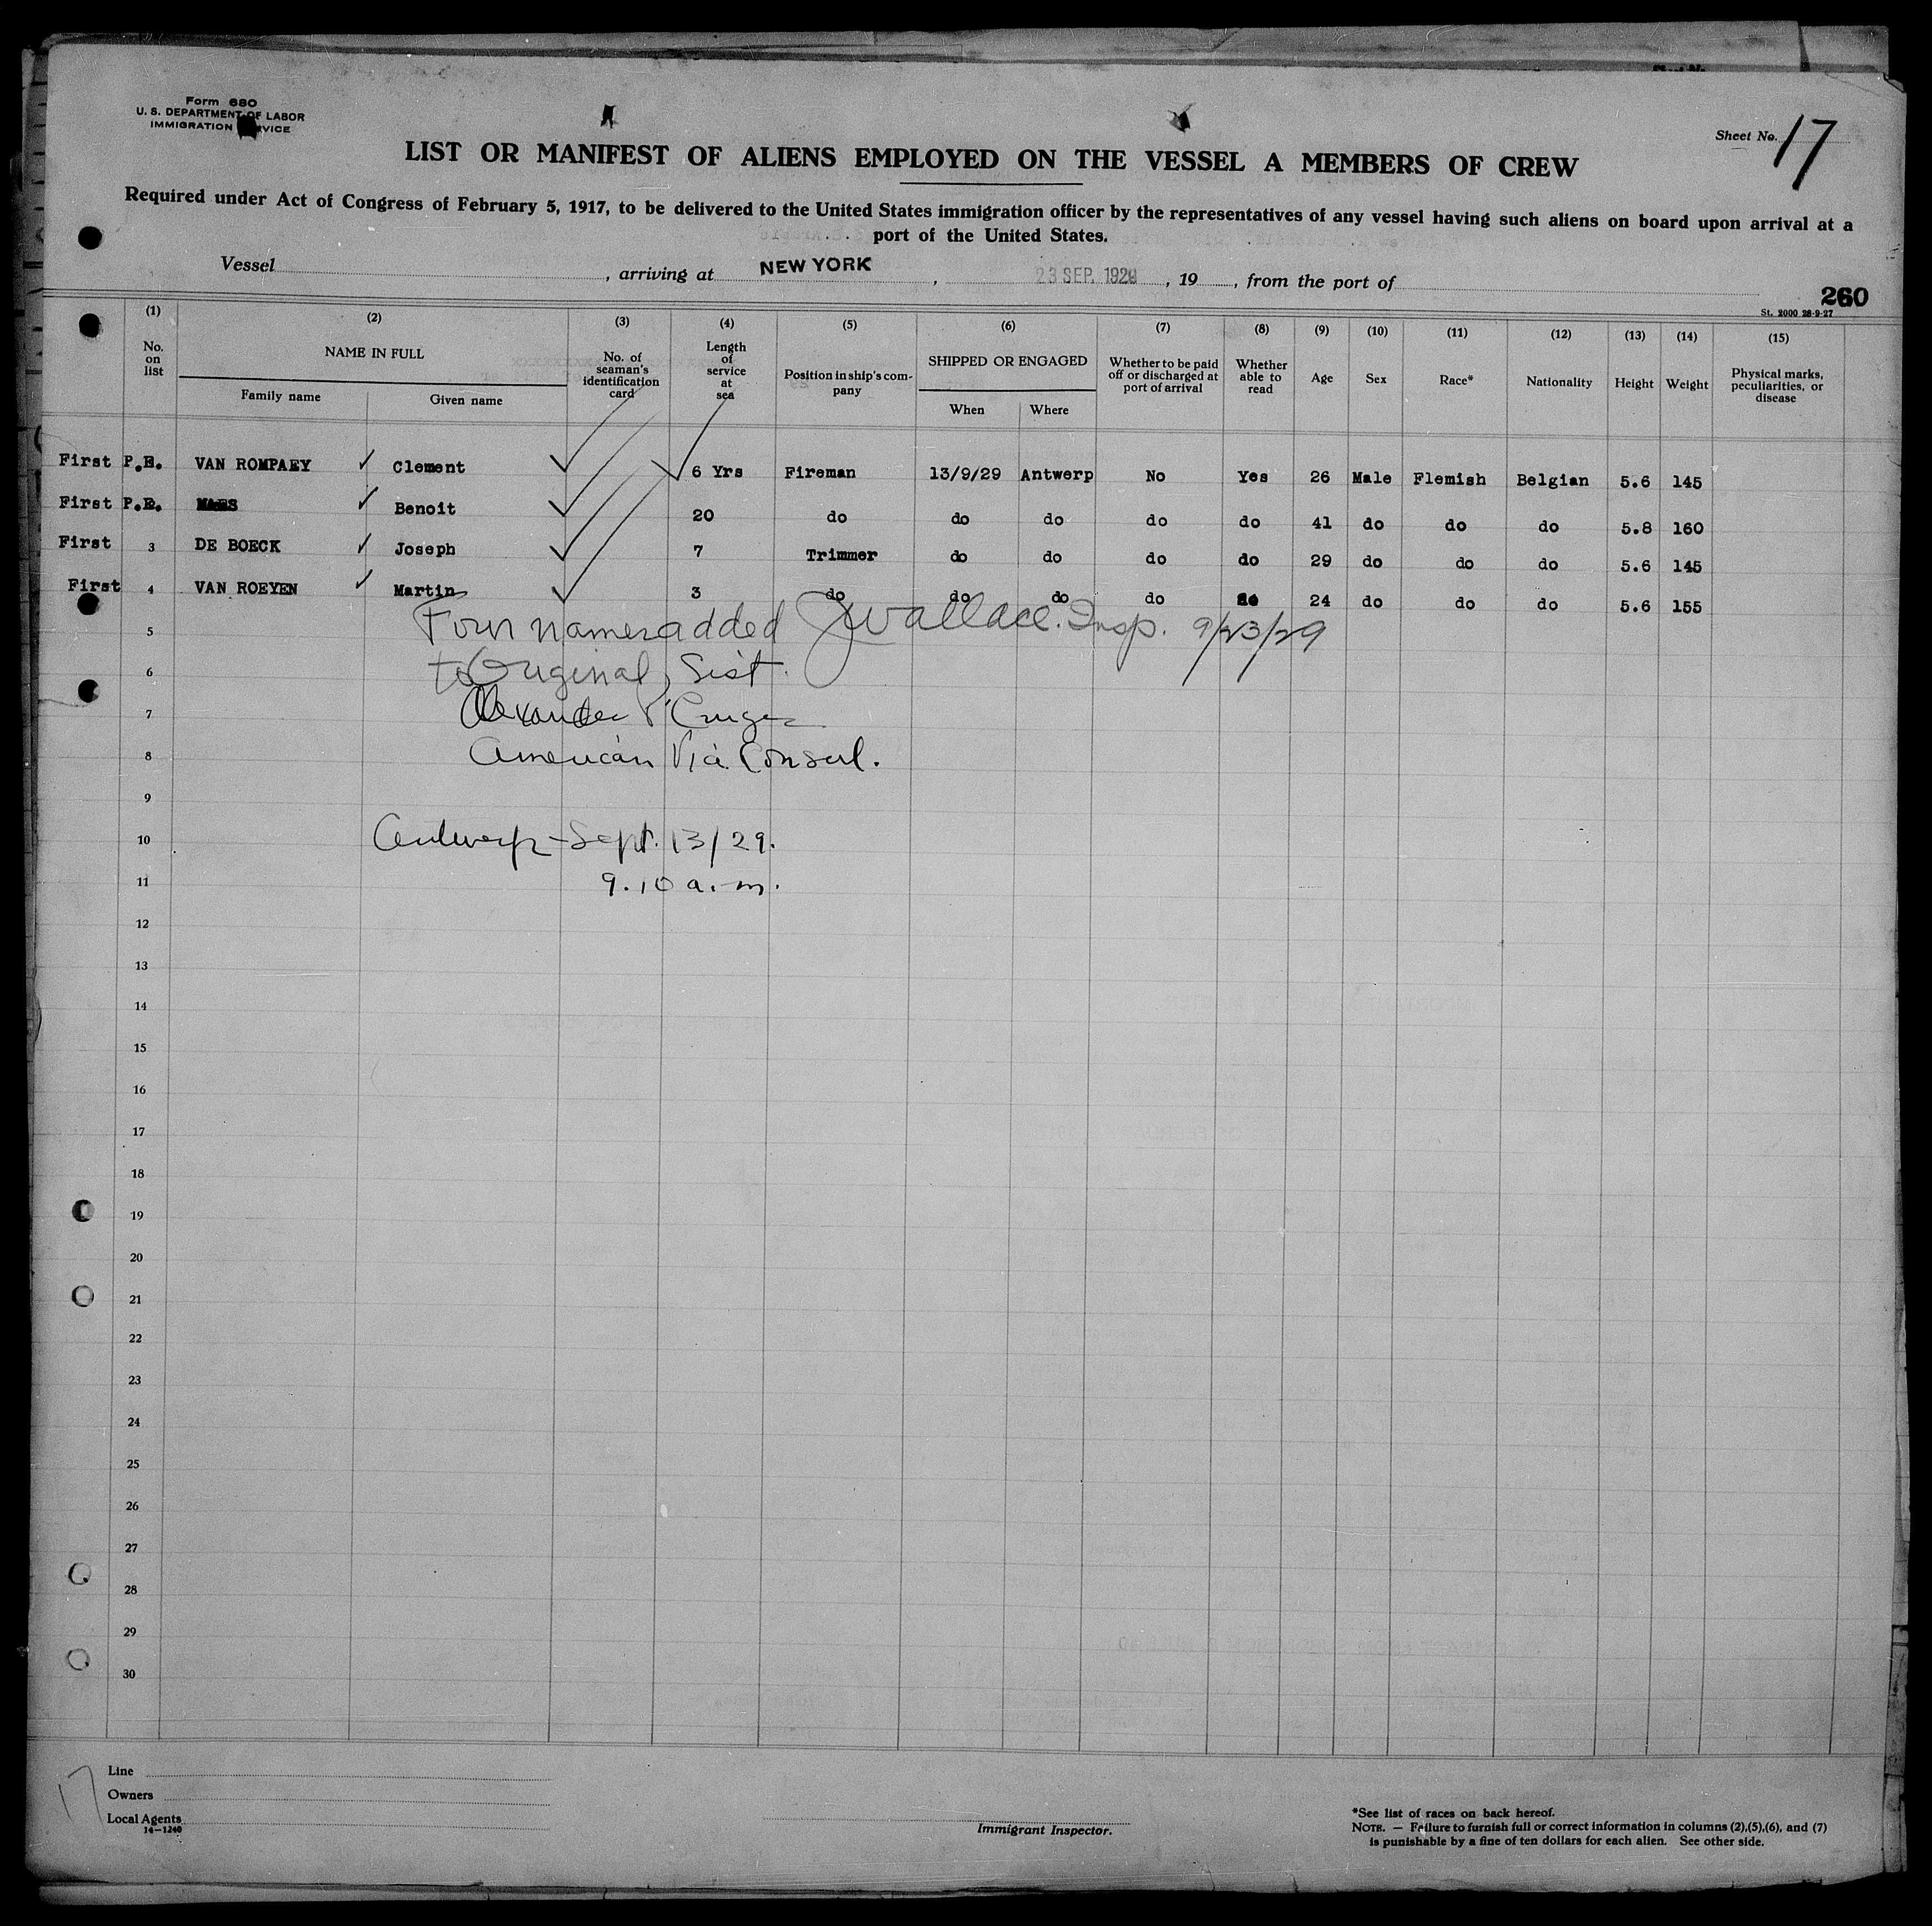 Form 680
U. S. DEPARTMENT OF LABOR
IMMIGRATION SERVICE
Sheet No. 17
LIST OR MANIFEST OF ALIENS EMPLOYED ON THE VESSEL A MEMBERS OF CREW
Required under Act of Congress of February 5, 1917, to be delivered to the United States immigration officer by the representatives of any vessel having such aliens on board upon arrival at a
port of the United States.
Vessel , arriving at NEW YORK , 23 SEP. 1929 , 19 , from the port of
260
St. 2000 28-9-27
(1) (2) (3) (4) (5) (6) (7) (8) (9) (10) (11) (12) (13) (14) (15)
No. on list NAME IN FULL Family name Given name No. of seaman's identification card Length of service at sea Position in ship's company SHIPPED OR ENGAGED When Where Whether to be paid off or discharged at port of arrival Whether able to read Age Sex Race* Nationality Height Weight Physical marks, peculiarities, or disease
First P.E. VAN ROMPAEY Clement 6 Yrs Fireman 13/9/29 Antwerp No Yes 26 Male Flemish Belgian 5.6 145
First P.E. MAES Benoit 20 do do do do do 41 do do do 5.8 160
First 3 DE BOECK Joseph 7 Trimmer do do do do 29 do do do 5.6 145
First 4 VAN ROEYEN Martin 3 do do do do do 24 do do do 5.6 155
Four names added JWallace. Insp. 9/23/29
5
to Original List
6
7 Alexander P Cruger
8 American Vice Consul.
9
10 Antwerp - Sept. 13/29.
11 9.10 a.m.
12
13
14
15
16
17
18
19
20
21
22
23
24
25
26
27
28
29
30
17
Line
Owners
Local Agents
14-1240
Immigrant Inspector.
*See list of races on back hereof.
NOTE. — Failure to furnish full or correct information in columns (2),(5),(6), and (7)
is punishable by a fine of ten dollars for each alien. See other side.